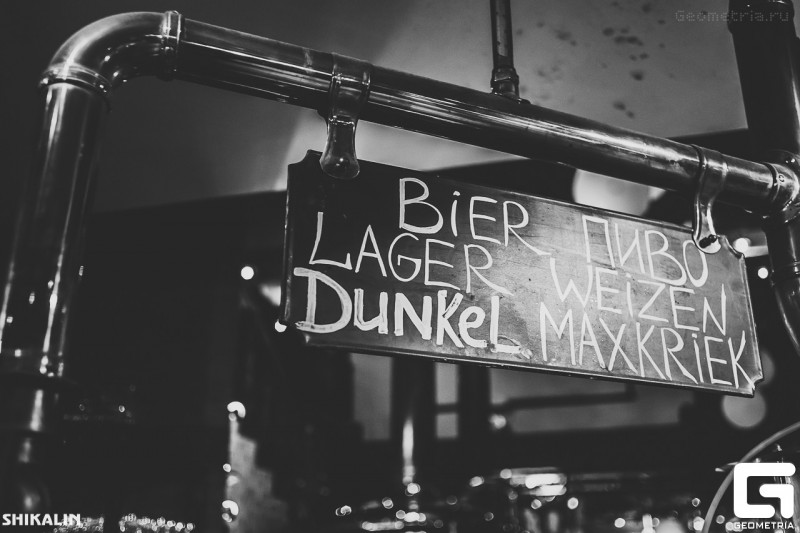 Geometria.ru
BiER ПИВО
LAGER WEiZEN
DUNKeL MAXKRiEK
SHIKALIN
G
GEOMETRIA